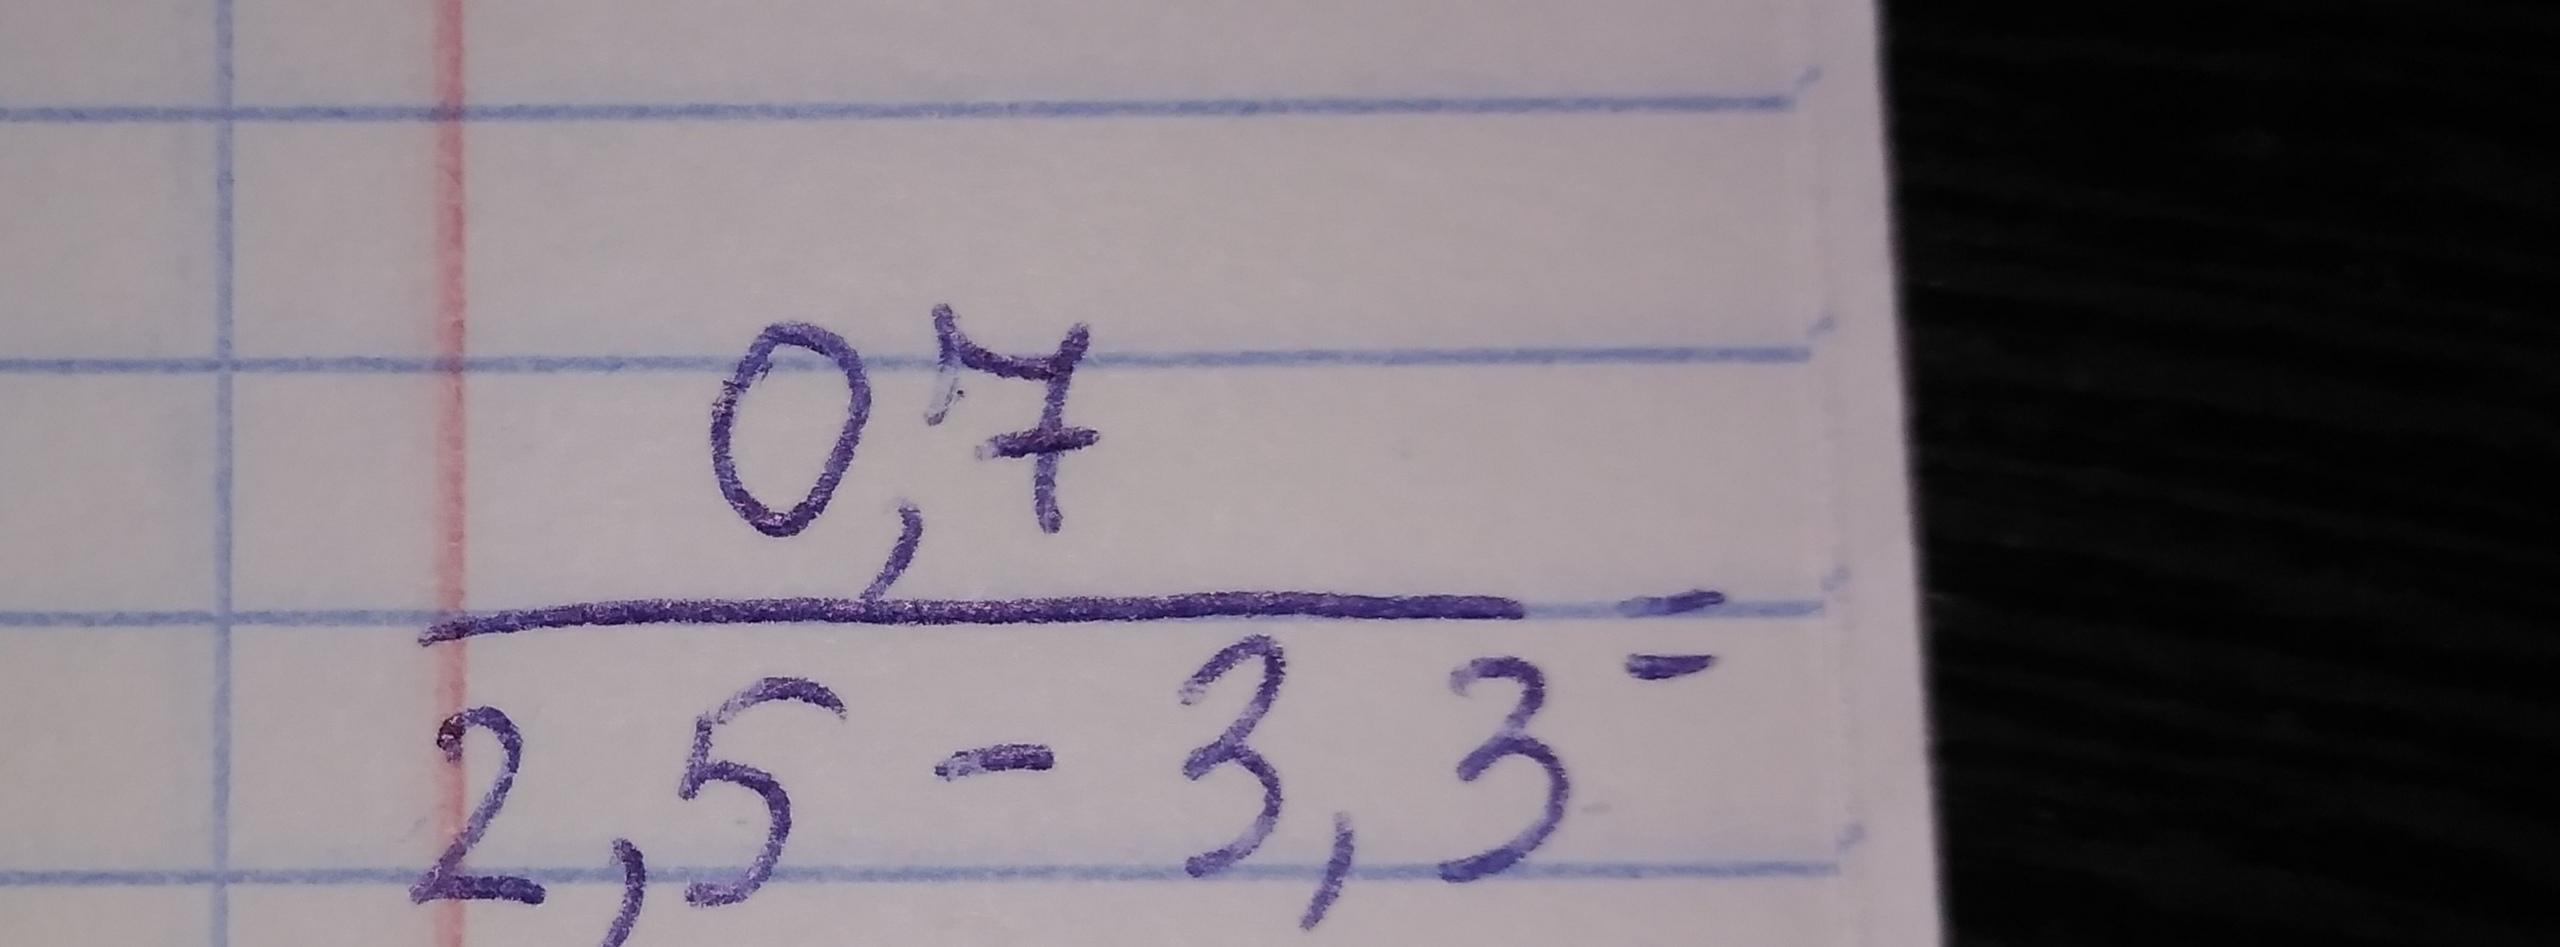 0,7
2,5 - 3,3 =